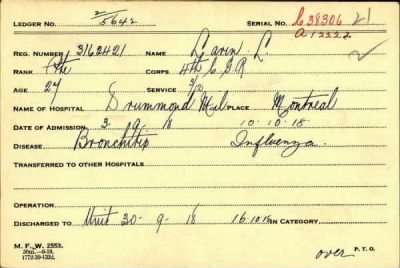 2
LEDGER NO. 5642 SERIAL NO. C 38306 21
A 12222
REG. NUMBER 3162421 NAME Lavin L.
RANK Pte CORPS 4th C.G.R
AGE 24 SERVICE 5/12
NAME OF HOSPITAL Drummond Mil PLACE Montreal
DATE OF ADMISSION 3 - 9 - 18 10-10-18.
DISEASE Bronchitis Influenza.
TRANSFERRED TO OTHER HOSPITALS
OPERATION
DISCHARGED TO Unit 30 - 9 - 18 16-10-18 IN CATEGORY
M. F. W. 2553.
1772-39-1332.
over P. T. O.